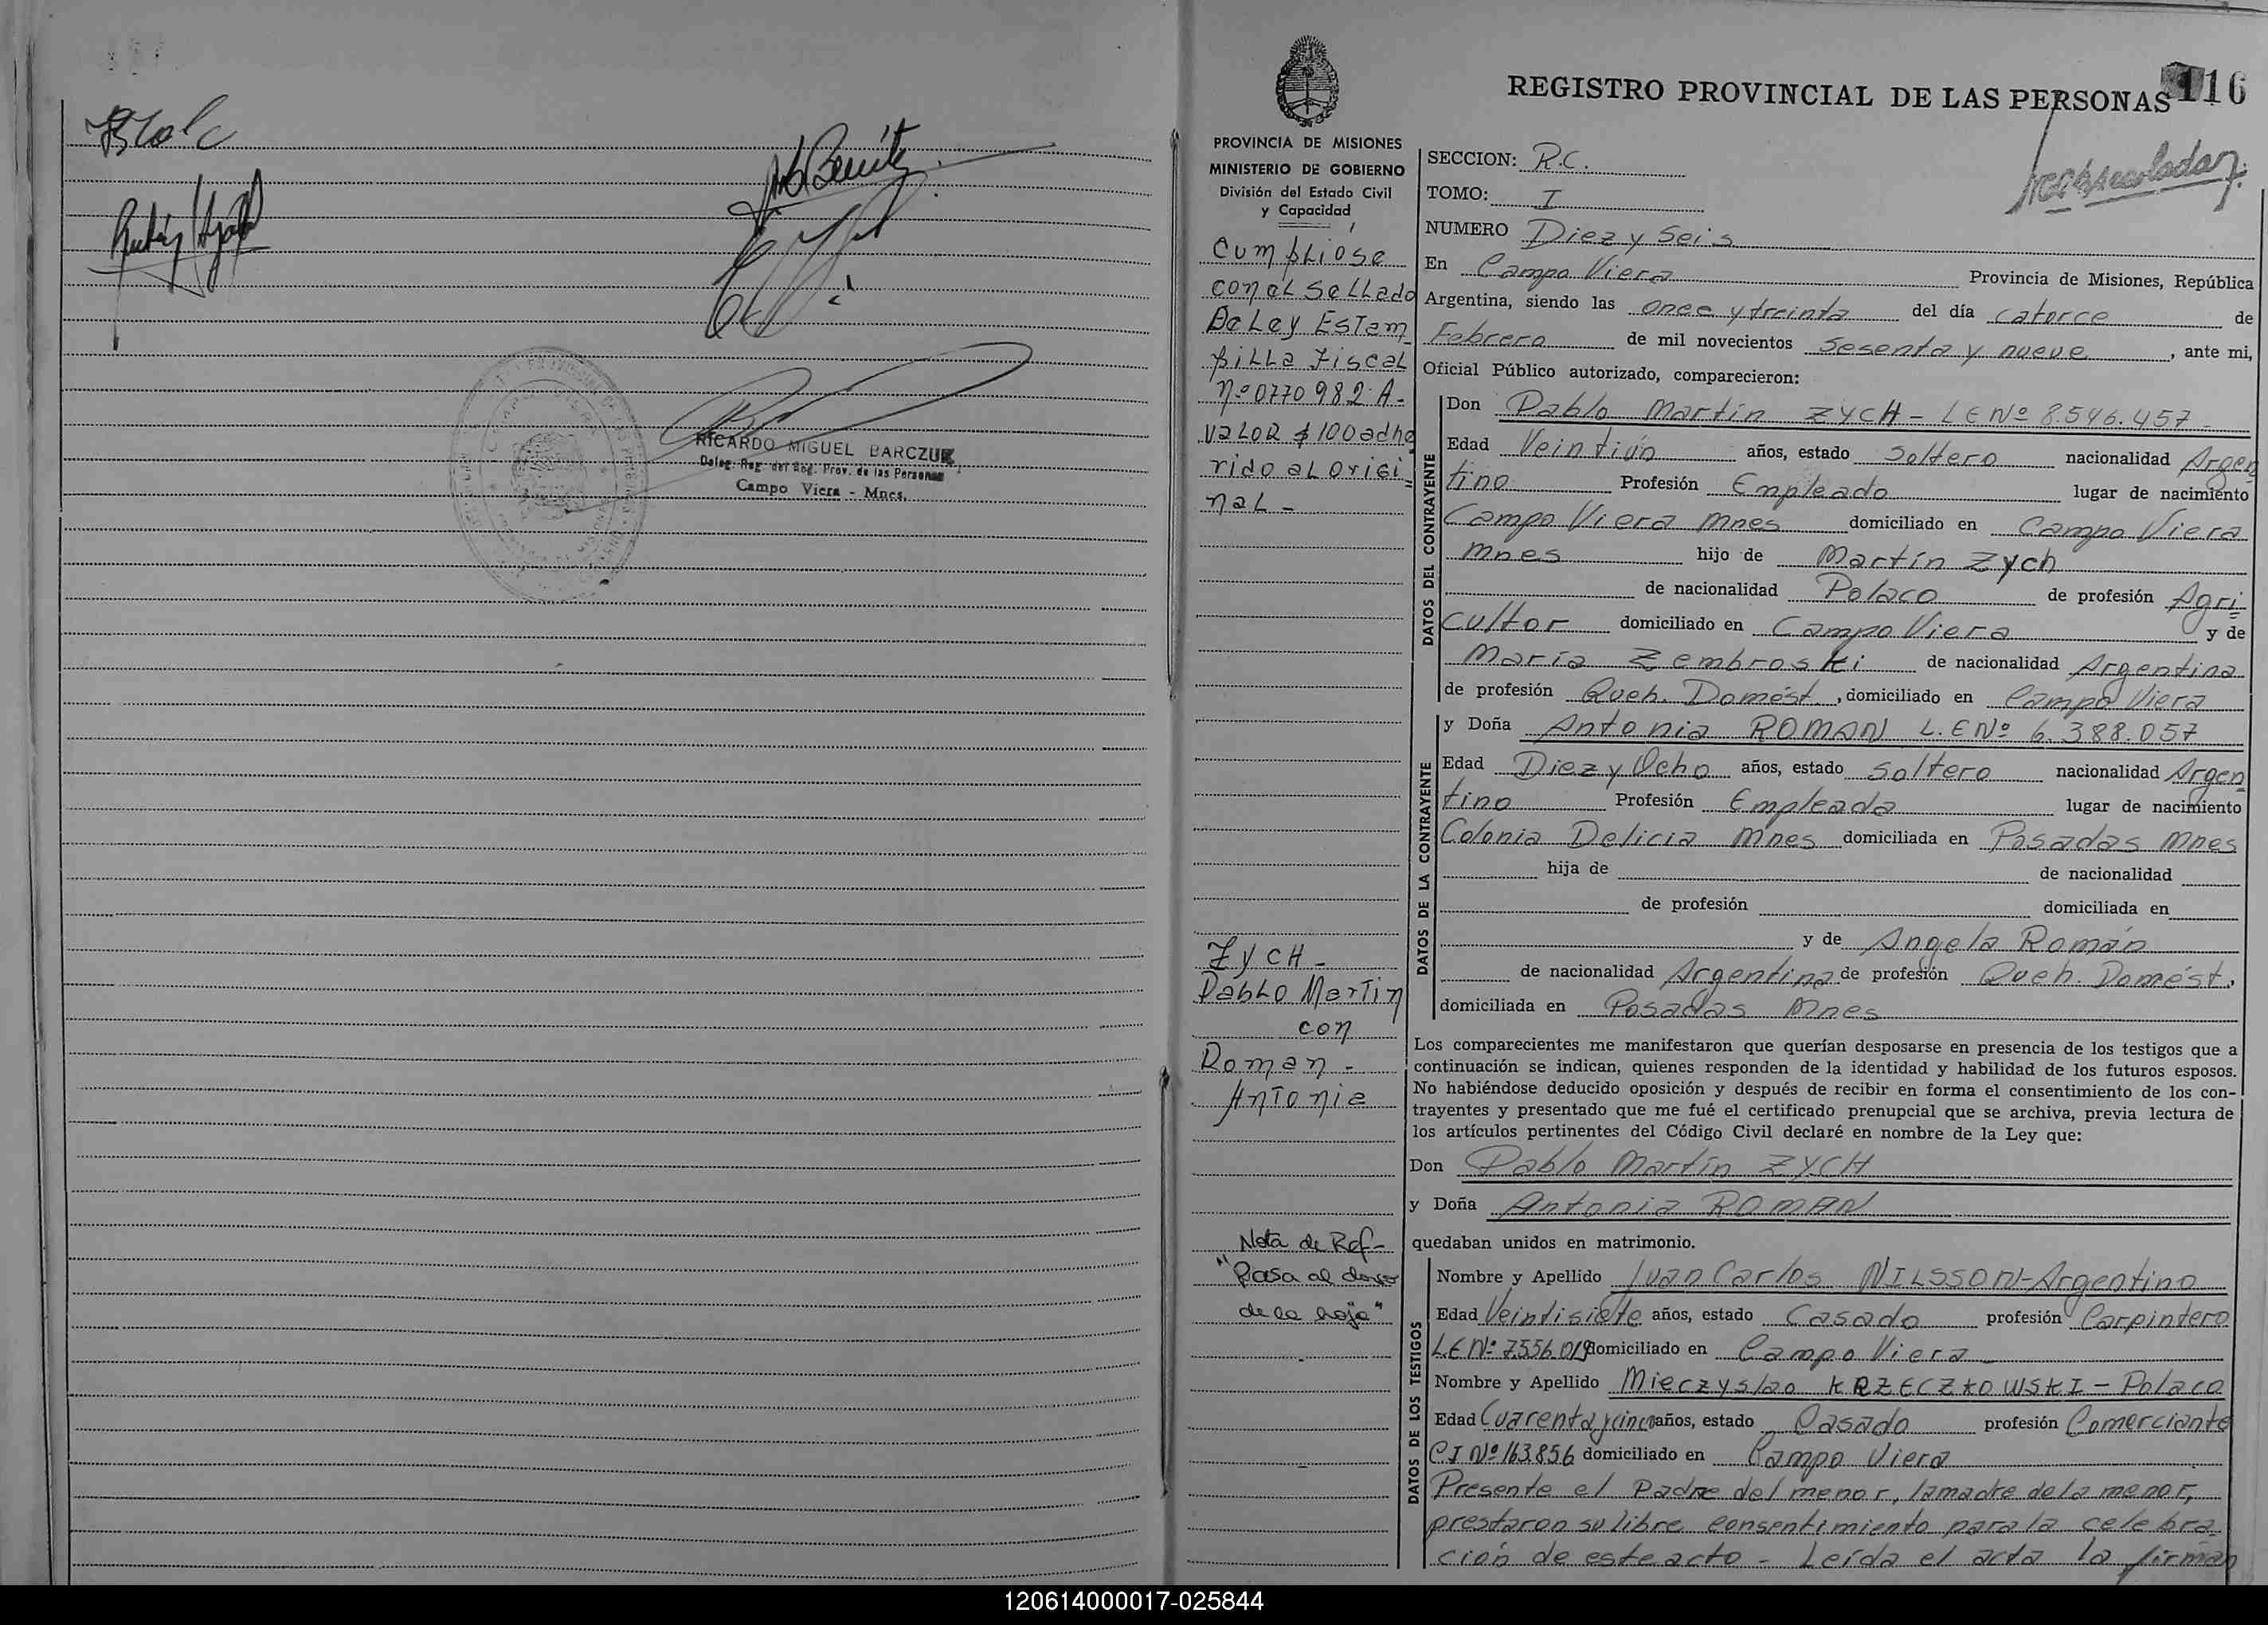 RICARDO MIGUEL BARCZUK
Deleg. Reg. del Reg. Prov. de las Personas
Campo Viera - Mnes.
REGISTRO PROVINCIAL DE LAS PERSONAS
116
PROVINCIA DE MISIONES
MINISTERIO DE GOBIERNO
División del Estado Civil
y Capacidad
Cumplióse
con el Sellado
De Ley Estam
pilla Fiscal
nº 0770982 A-
valor $100 adhe
rido al origi
nal -
ZYCH -
Pablo Martin
con
Roman -
Antonia
Nota de Ref-
"Pasa al dorso
de la hoja"
SECCION: R.C.
TOMO: I
NUMERO Diez y Seis
En Campo Viera Provincia de Misiones, República
Argentina, siendo las once y treinta del día catorce de
Febrero de mil novecientos Sesenta y nueve, ante mi,
Oficial Público autorizado, comparecieron:
DATOS DEL CONTRAYENTE
Don Pablo Martín ZYCH - LE Nº 8.546.457 -
Edad Veintiún años, estado Soltero nacionalidad Argen
tino Profesión Empleado lugar de nacimiento
Campo Viera Mnes domiciliado en Campo Viera
Mnes hijo de Martín Zych
de nacionalidad Polaco de profesión Agri
cultor domiciliado en Campo Viera y de
María Zembroski de nacionalidad Argentina
de profesión Queh. Domést., domiciliado en Campo Viera
DATOS DE LA CONTRAYENTE
y Doña Antonia ROMAN L.E Nº 6.388.057
Edad Diez y Ocho años, estado Soltera nacionalidad Argen
tina Profesión Empleada lugar de nacimiento
Colonia Delicia Mnes domiciliada en Posadas Mnes
hija de de nacionalidad
de profesión domiciliada en
y de Angela Román
de nacionalidad Argentina de profesión Queh. Domést.,
domiciliada en Posadas Mnes
Los comparecientes me manifestaron que querían desposarse en presencia de los testigos que a
continuación se indican, quienes responden de la identidad y habilidad de los futuros esposos.
No habiéndose deducido oposición y después de recibir en forma el consentimiento de los con-
trayentes y presentado que me fué el certificado prenupcial que se archiva, previa lectura de
los artículos pertinentes del Código Civil declaré en nombre de la Ley que:
Don Pablo Martín ZYCH
y Doña Antonia ROMAN
quedaban unidos en matrimonio.
DATOS DE LOS TESTIGOS
Nombre y Apellido Juan Carlos NILSSON - Argentino
Edad Veintisiete años, estado Casado profesión Carpintero
LE Nº 7556.019 domiciliado en Campo Viera
Nombre y Apellido Mieczyslao KRZECZKOWSKI - Polaco
Edad Cuarenta y cinco años, estado Casado profesión Comerciante
CI Nº 163.856 domiciliado en Campo Viera
Presente el Padre del menor, la madre de la menor,
prestaron su libre consentimiento para la celebra
ción de este acto - Leída el acta la firman
120614000017-025844